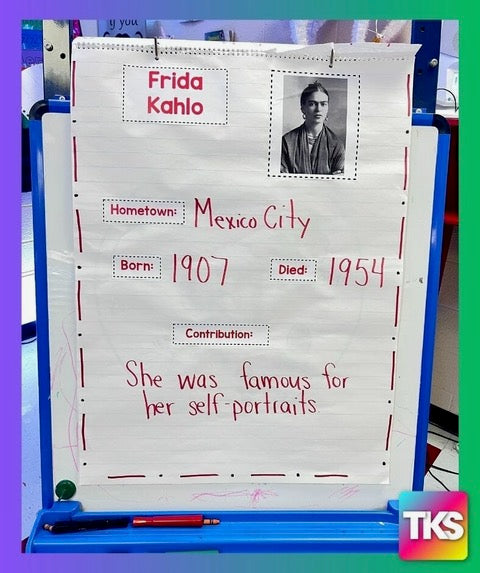 if you
Frida
Kahlo
Hometown: Mexico City
Born: 1907 Died: 1954
Contribution:
She was famous for
her self-portraits
TKS